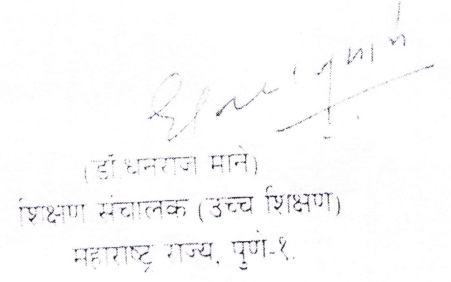 (डॉ.धनराज माने)
शिक्षण संचालक (उच्च शिक्षण)
महाराष्ट्र राज्य, पुणे-१.